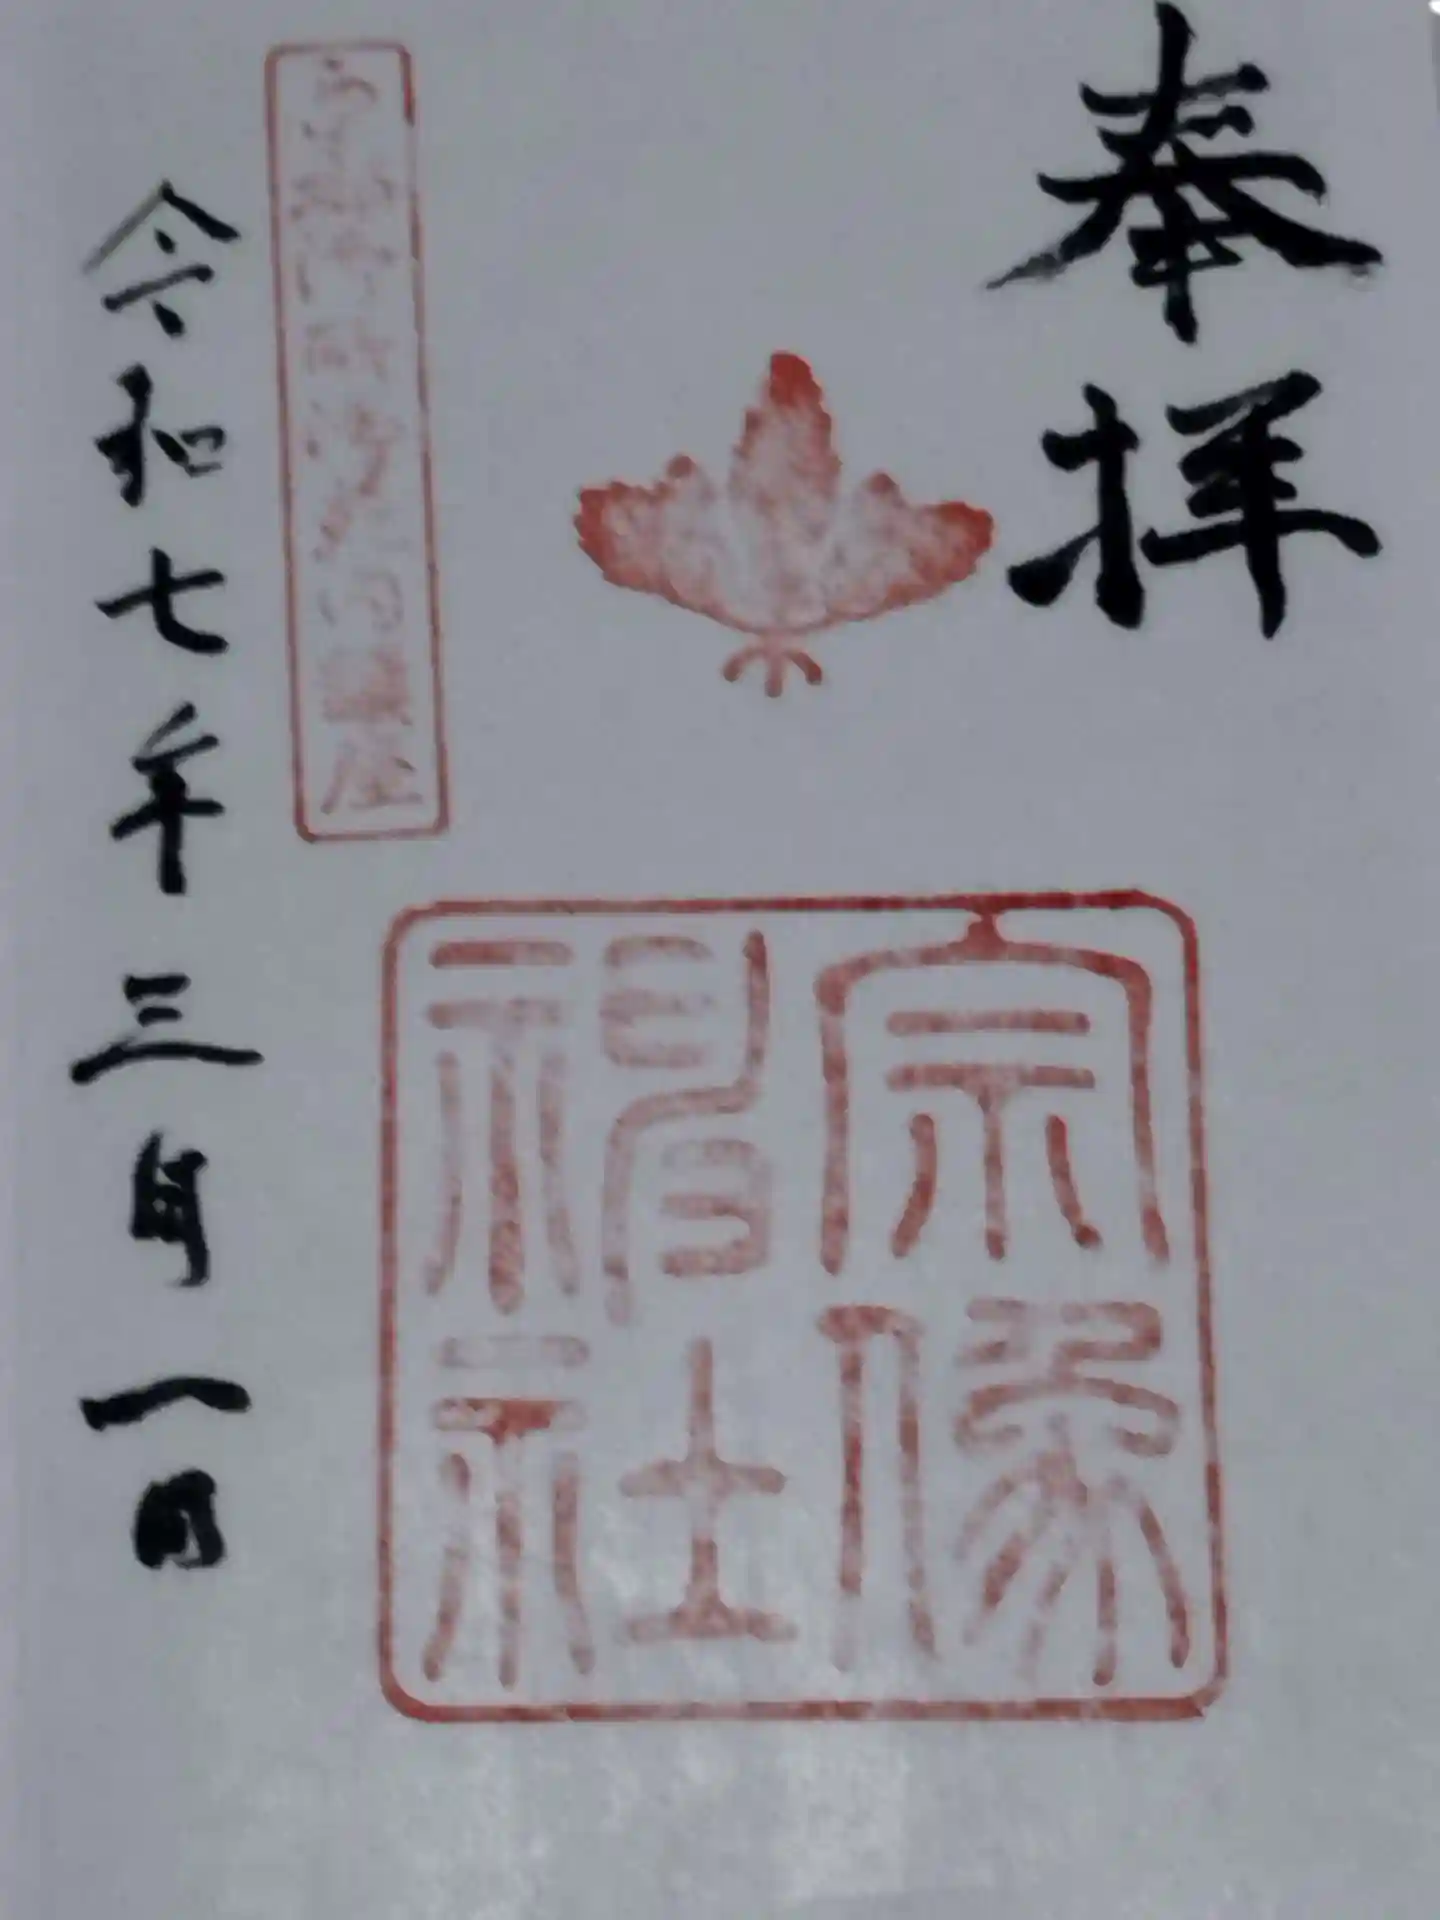 奉拝
宗像
神社
鎮座
令和七年三月一日